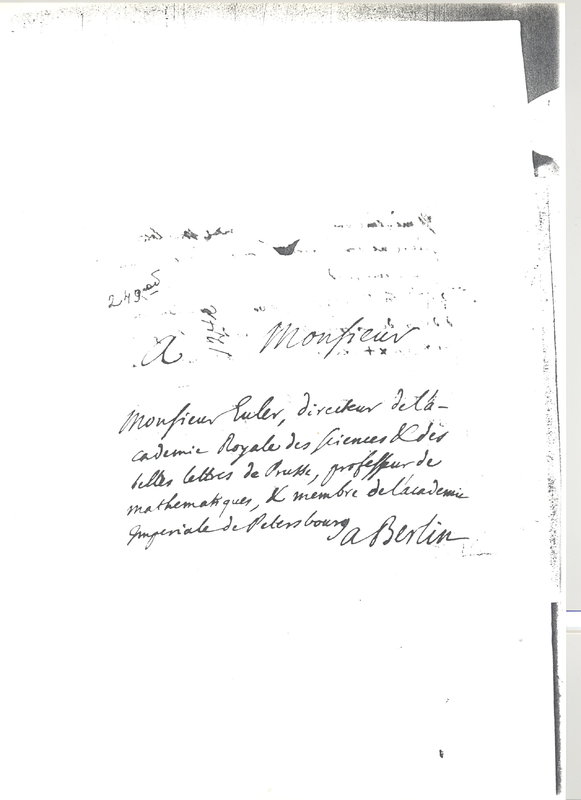 249
A Monsieur
Monsieur Euler, directeur de l'a-
cademie Royale des sciences & des
belles lettres de Prusse, professeur de
mathematiques, & membre de l'academie
Imperiale de Petersbourg
a Berlin